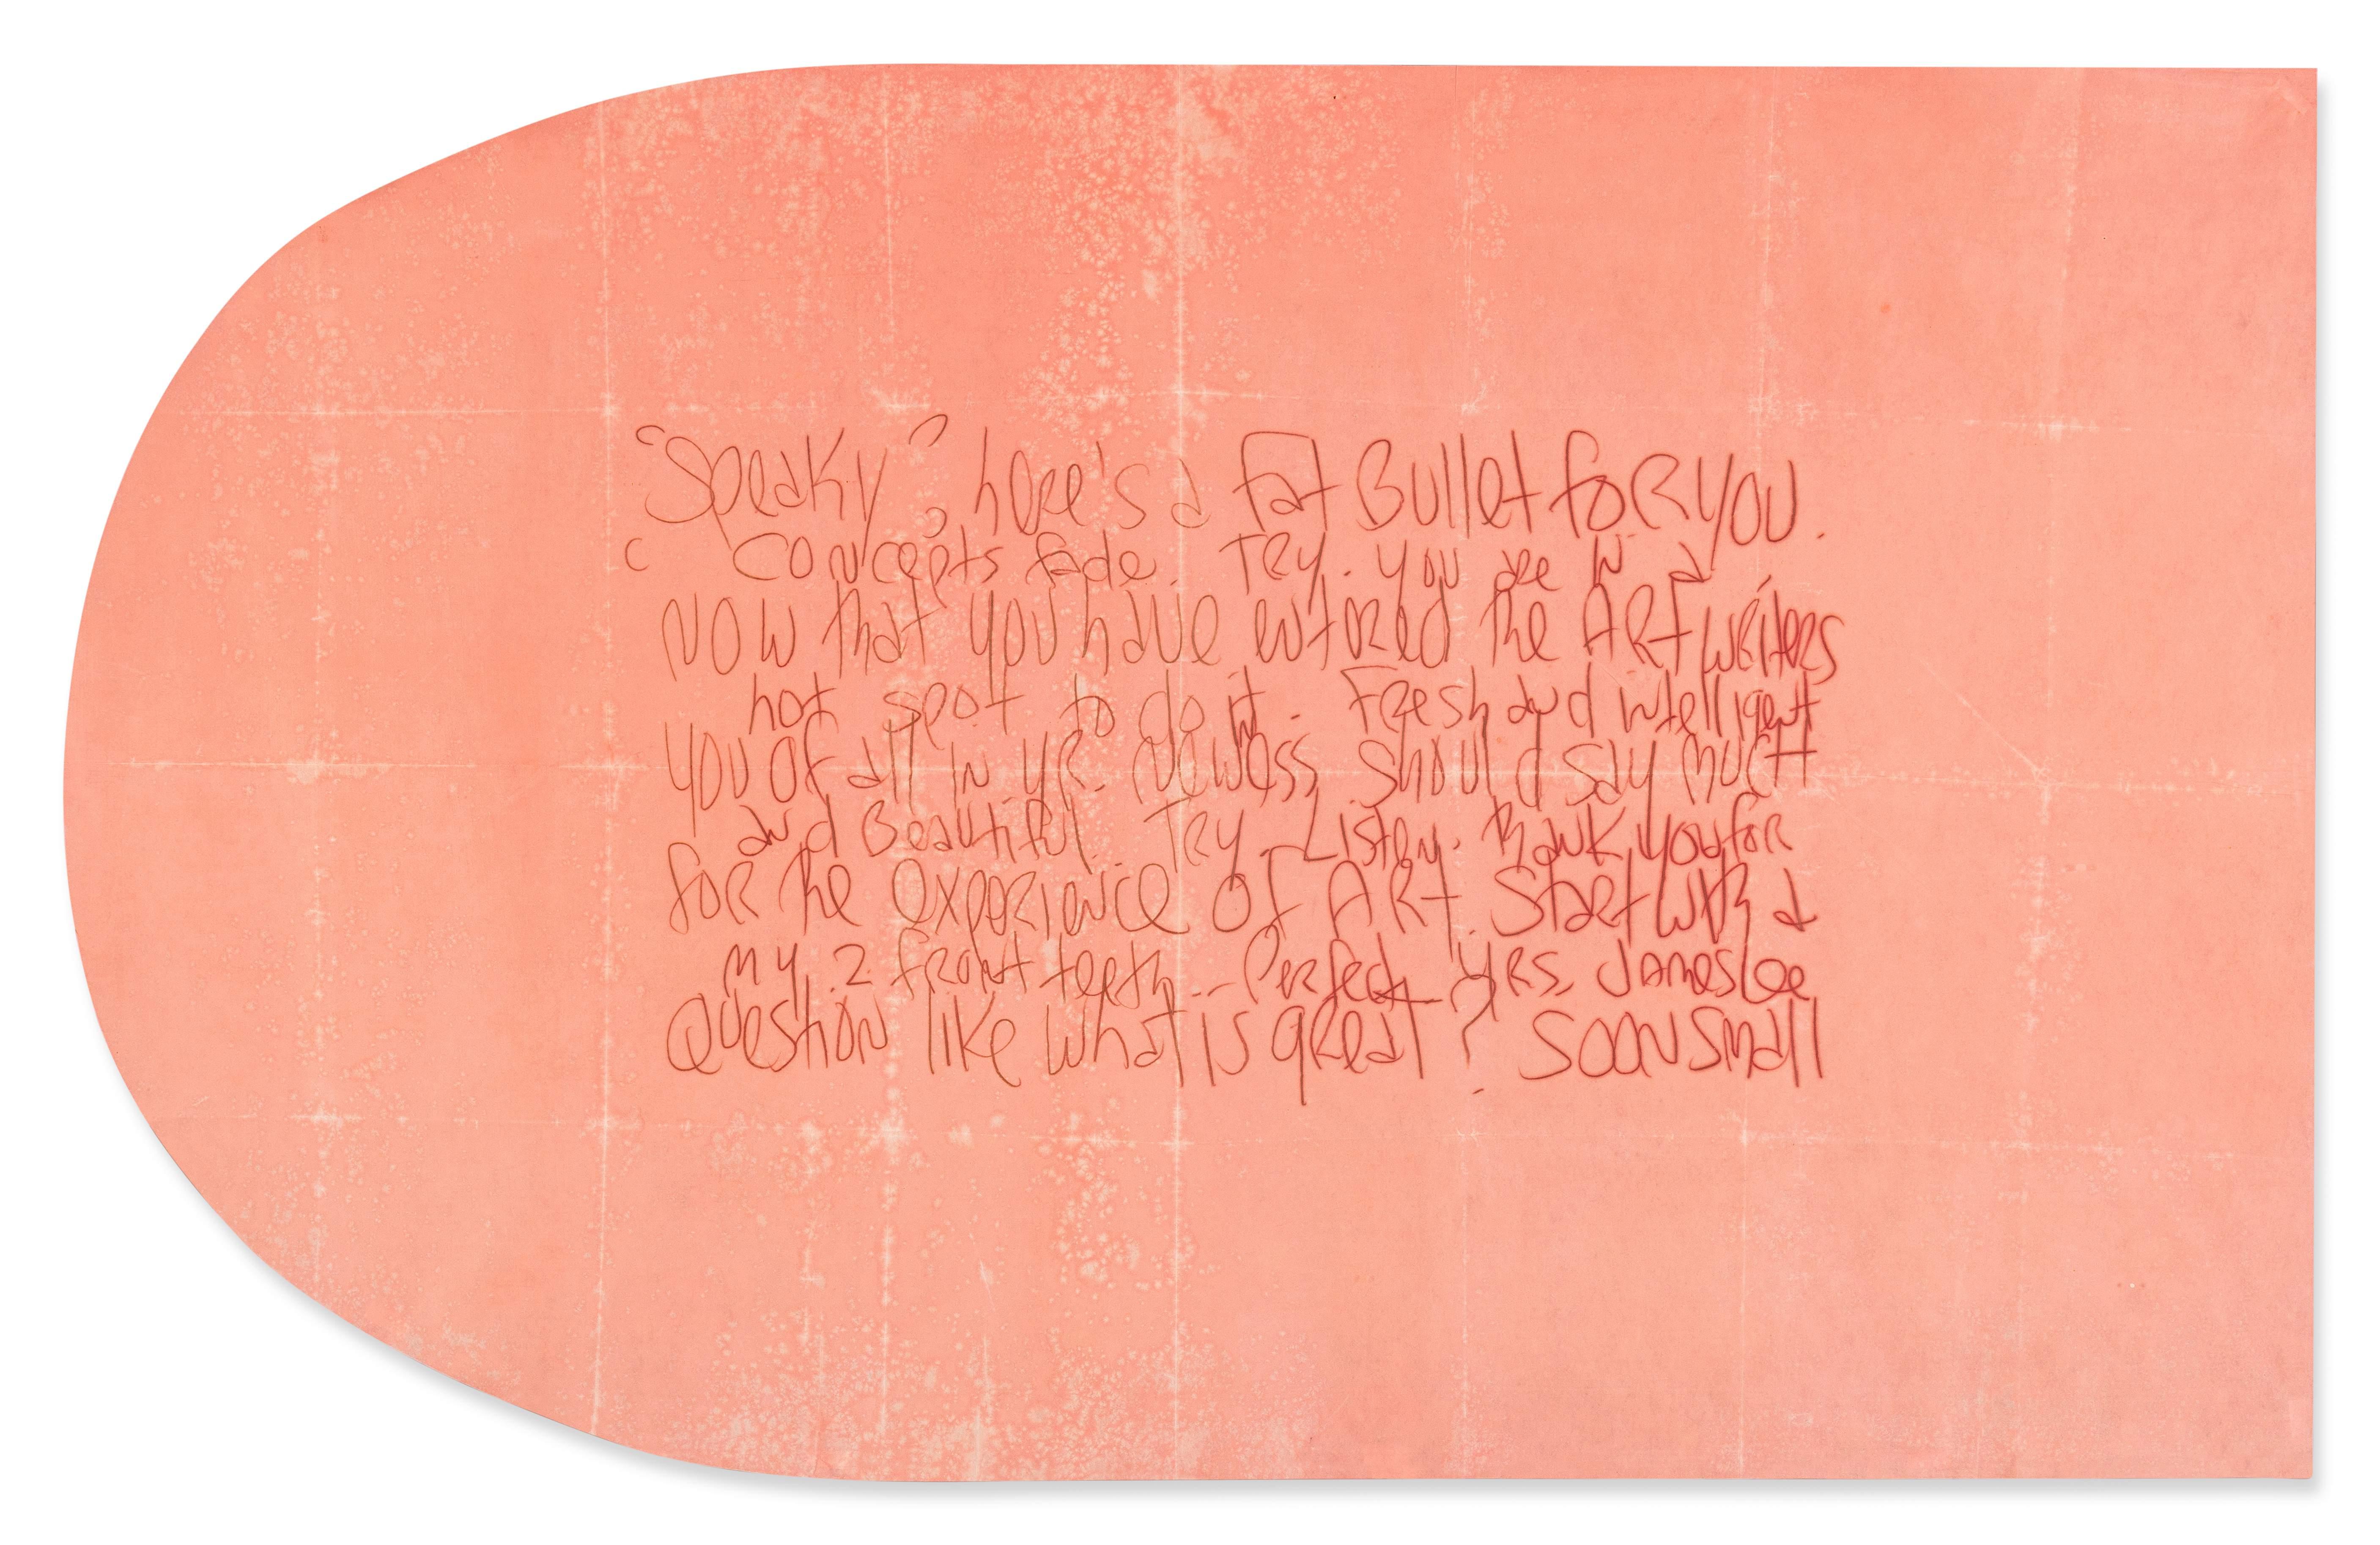 "Speaky", here's a fat Bullet for you.
Concepts fade. Try. you are in a
Now that you have entired the ART writers
hot spot to do it. Fresh and intelligent
you of all in yr. newness should say much
and Beautiful. Try. Listen. Thank you for
for the experience of ART. Start with a
my 2 front teeth... Perfect yrs, James Lee
Question like what is great? SOON small